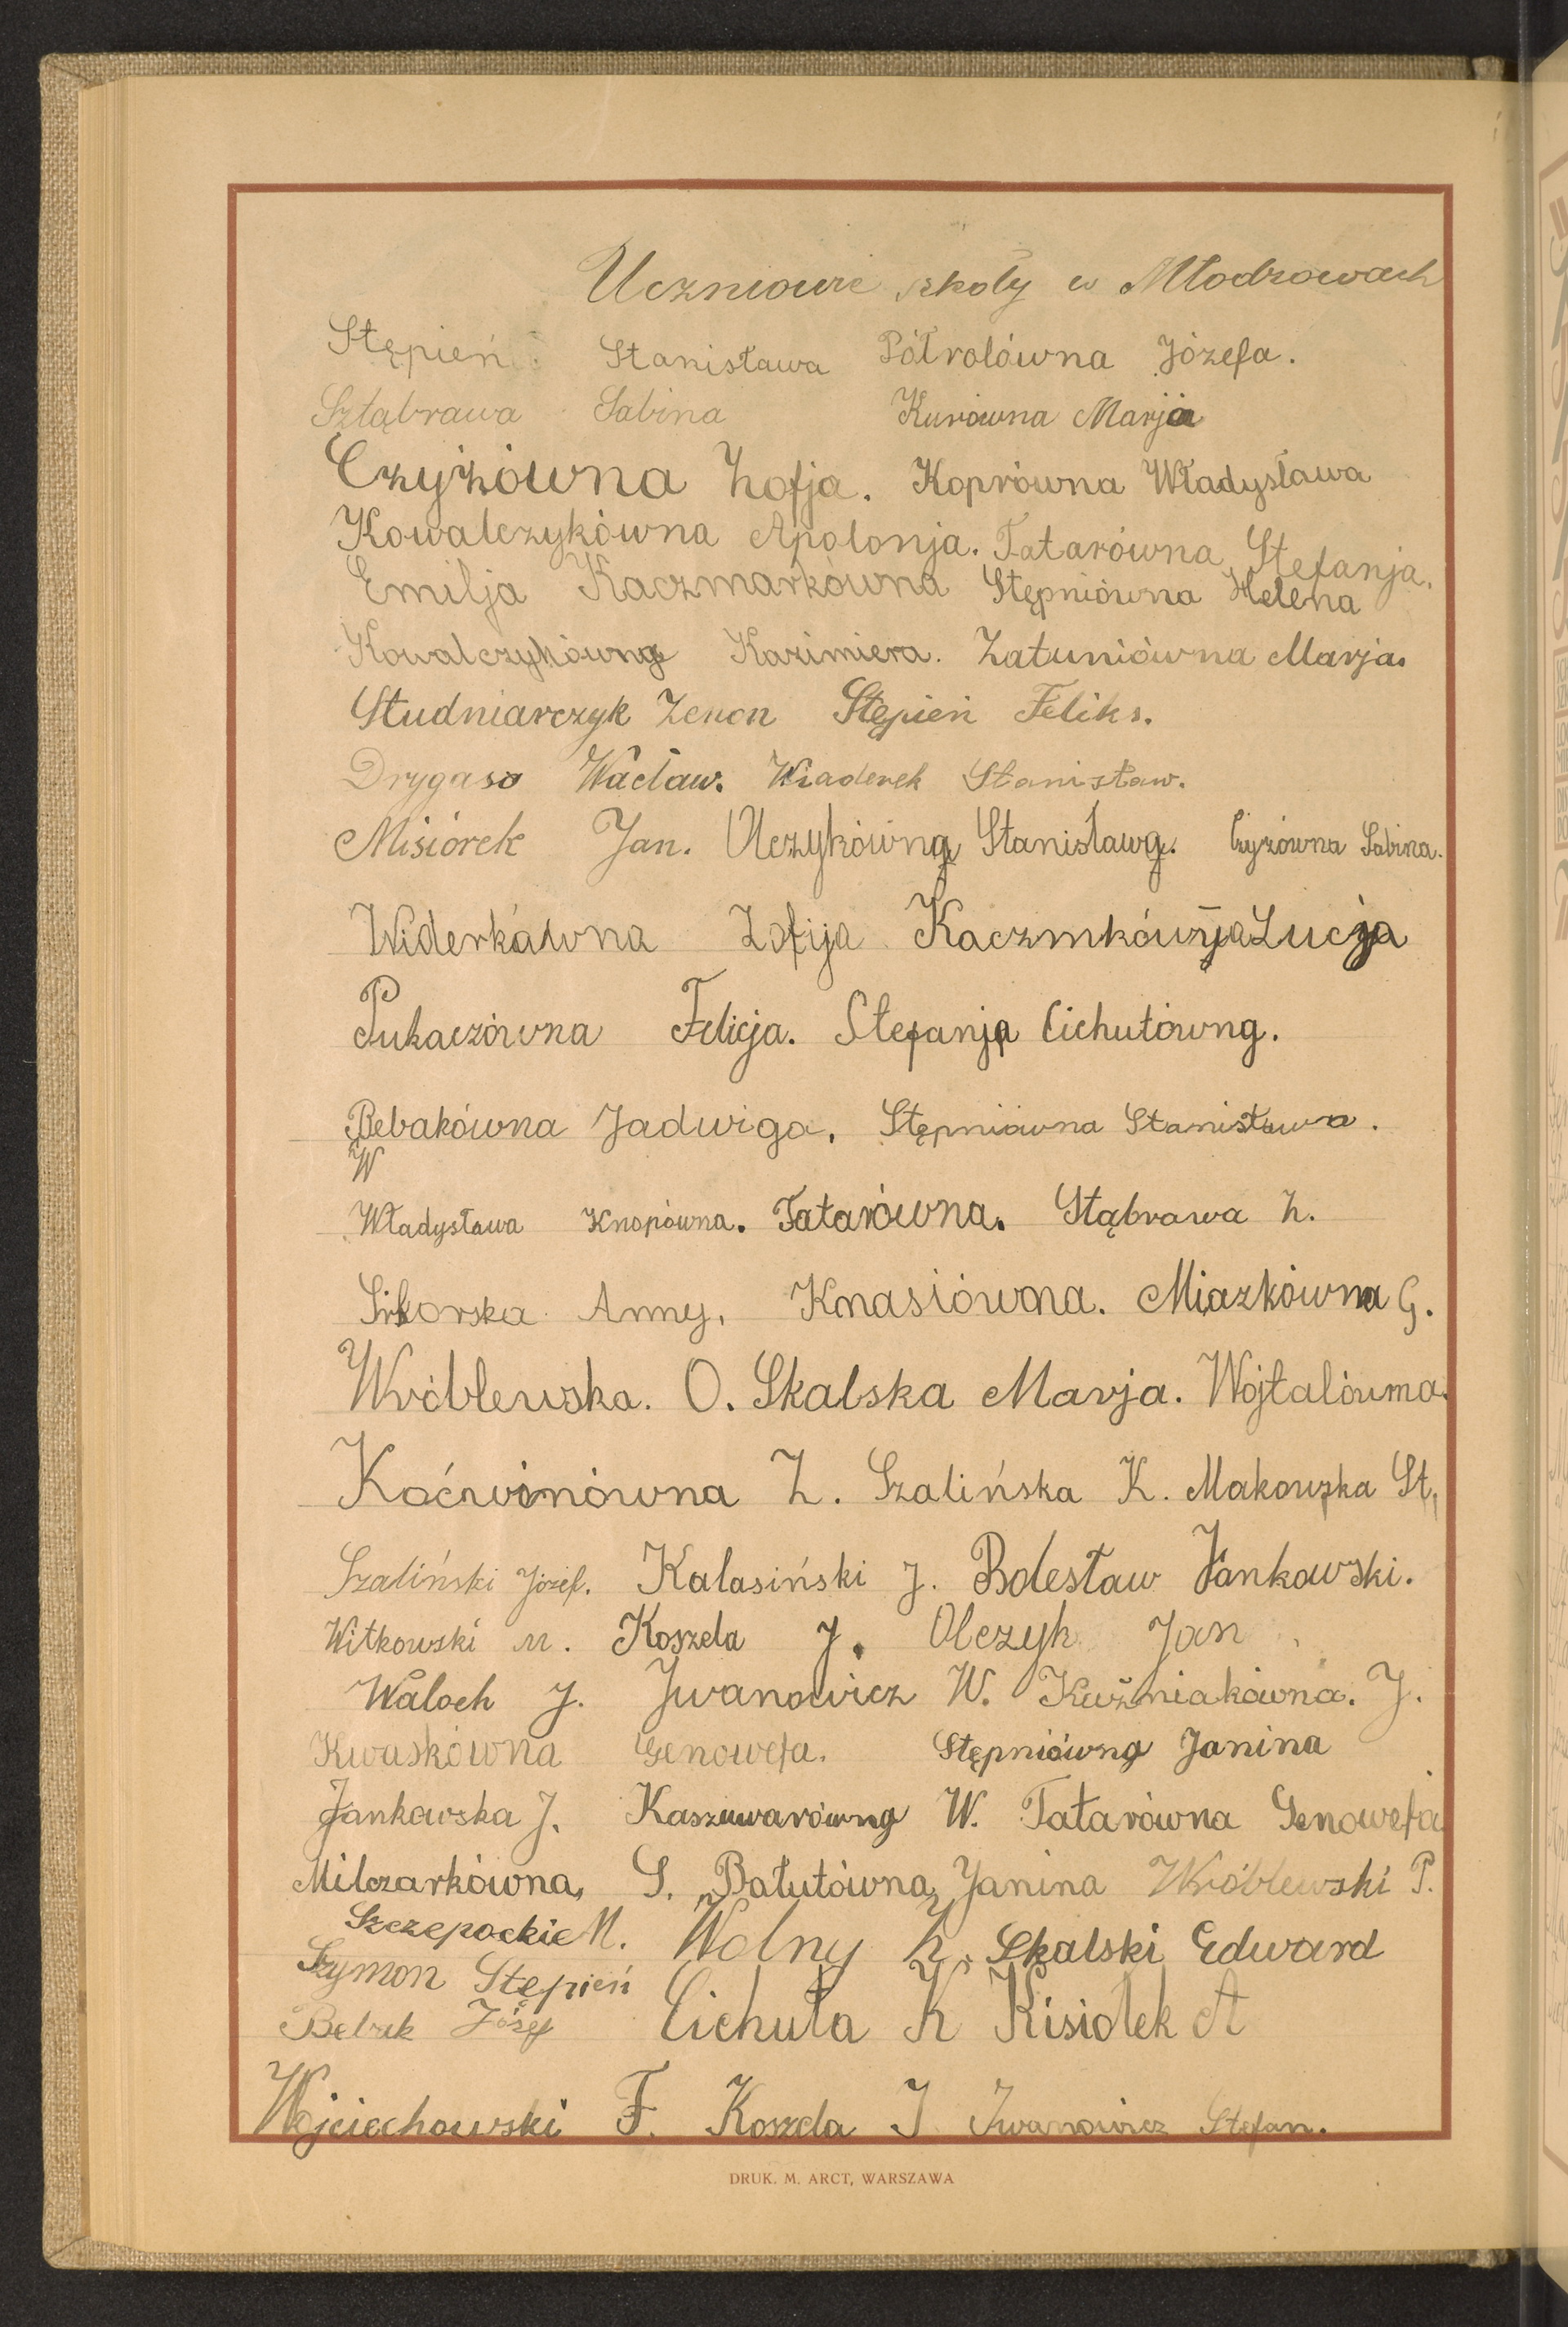 Uczniowie szkoły w Młodzowach
Stępień Stanisława Półrolówna Józefa.
Sztąbrawa Sabina Kurówna Marja
Czyżówna Zofja. Koprówna Władysława
Kowalczykówna Apolonja. Tatarówna Stefanja.
Emilja Kaczmarkówna Stępniówna Helena
Kowalczykówna Kazimiera. Załuniówna Marja.
Studniarczyk Zenon Stępień Feliks.
Drygaso Wacław. Wiaderek Stanisław.
Misiórek Jan. Olczykówna Stanisława. Czyżówna Sabina.
Widerkówna Zofija Kaczmkówna Lucja
Pukaczówna Felicja. Stefanja Cichutówna.
Bebakówna Jadwiga. Stępniówna Stanisława.
W
Władysława Knopówna. Tatarówna. Stąbrawa Z.
Sikorska Anny. Knasiówna. Miazkówna G.
Wróblewska. O. Skalska Marja. Wójtalówna.
Koćwinówna Z. Szalińska K. Makowska St.
Szaliński Józef. Kalasiński J. Bolesław Jankowski.
Witkowski M. Koszela J. Olczyk Jan
Waloch J. Jwanowicz W. Kuźniakówna. J.
Kwaskówna Genowefa. Stępniówna Janina
Jankowska J. Kaszuwarówna W. Tatarówna Genowefa
Milczarkówna, S. Bałutówna, Janina Wróblewski P.
Szczepockie M. Wolny Z. Skalski Edward
Szymon Stępień
Bebak Józef Cichuta K Kisiołek A
Wojciechowski F. Koszela J Jwanowicz Stefan.
DRUK. M. ARCT, WARSZAWA